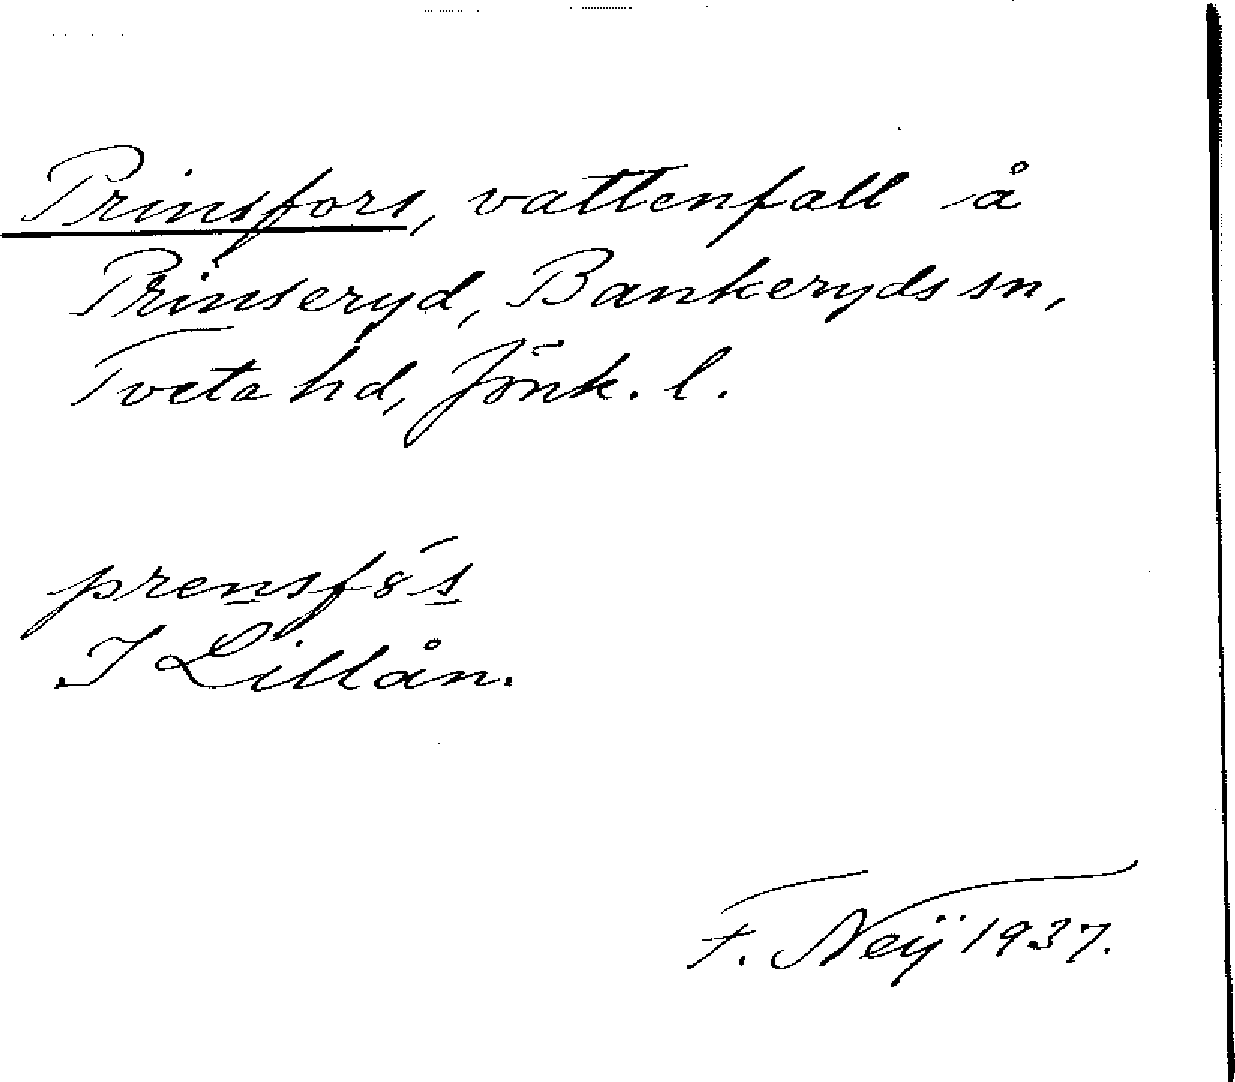 Prinsfors, vattenfall å
Prinseryd, Bankeryds sn,
Tveta hd, Jönk. l.
prensfs
I Lillån.
F. Neÿ 1937.